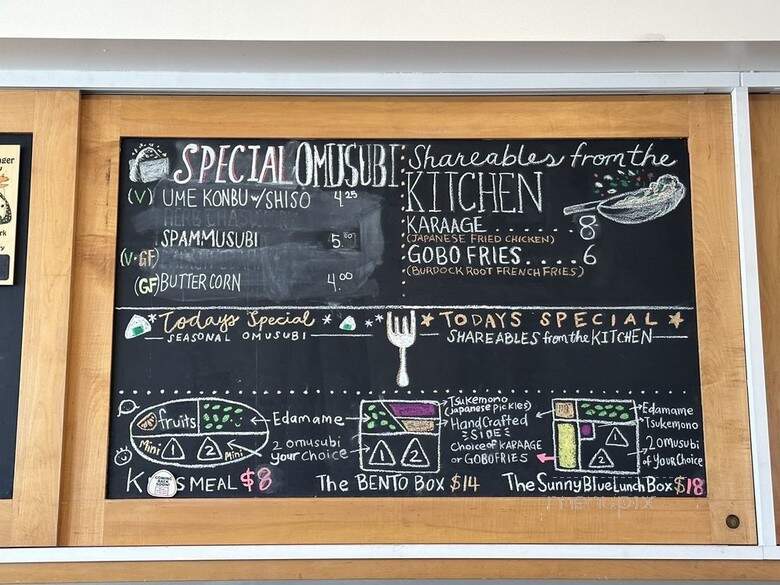 SPECIAL OMUSUBI
(V) UME KONBU w/SHISO 4.25
SPAMMUSUBI 5.00
(V•GF)
(GF) BUTTER CORN 4.00
Shareables from the
KITCHEN
KARAAGE.....8
(JAPANESE FRIED CHICKEN)
GOBO FRIES.....6
(BURDOCK ROOT FRENCH FRIES)
Todays Special
SEASONAL OMUSUBI
TODAYS SPECIAL
SHAREABLES from the KITCHEN
fruits
Edamame
Mini 1 2 Mini
2 omusubi
your choice
K SMEAL $8
COMING
BACK
SOON
Tsukemono
(Japanese pickles)
HandCrafted
SIDE
Choice of KARAAGE
or GOBOFRIES
1 2
The BENTO BOX $14
Edamame
Tsukemono
1
2
2 omusubi
of your Choice
The SunnyBlue Lunch Box $18